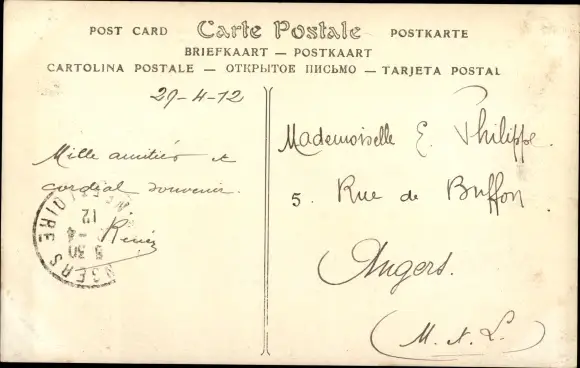 POST CARD Carte Postale POSTKARTE
BRIEFKAART — POSTKAART
CARTOLINA POSTALE — ОТКРЫТОЕ ПИСЬМО — TARJETA POSTAL
29-4-12
Mille amitiés et
cordial souvenir.
Renée
Mademoiselle E. Philippe.
5. Rue de Buffon
Angers.
(M. & L.)
ANGERS
8 30
-4
12
LOIRE